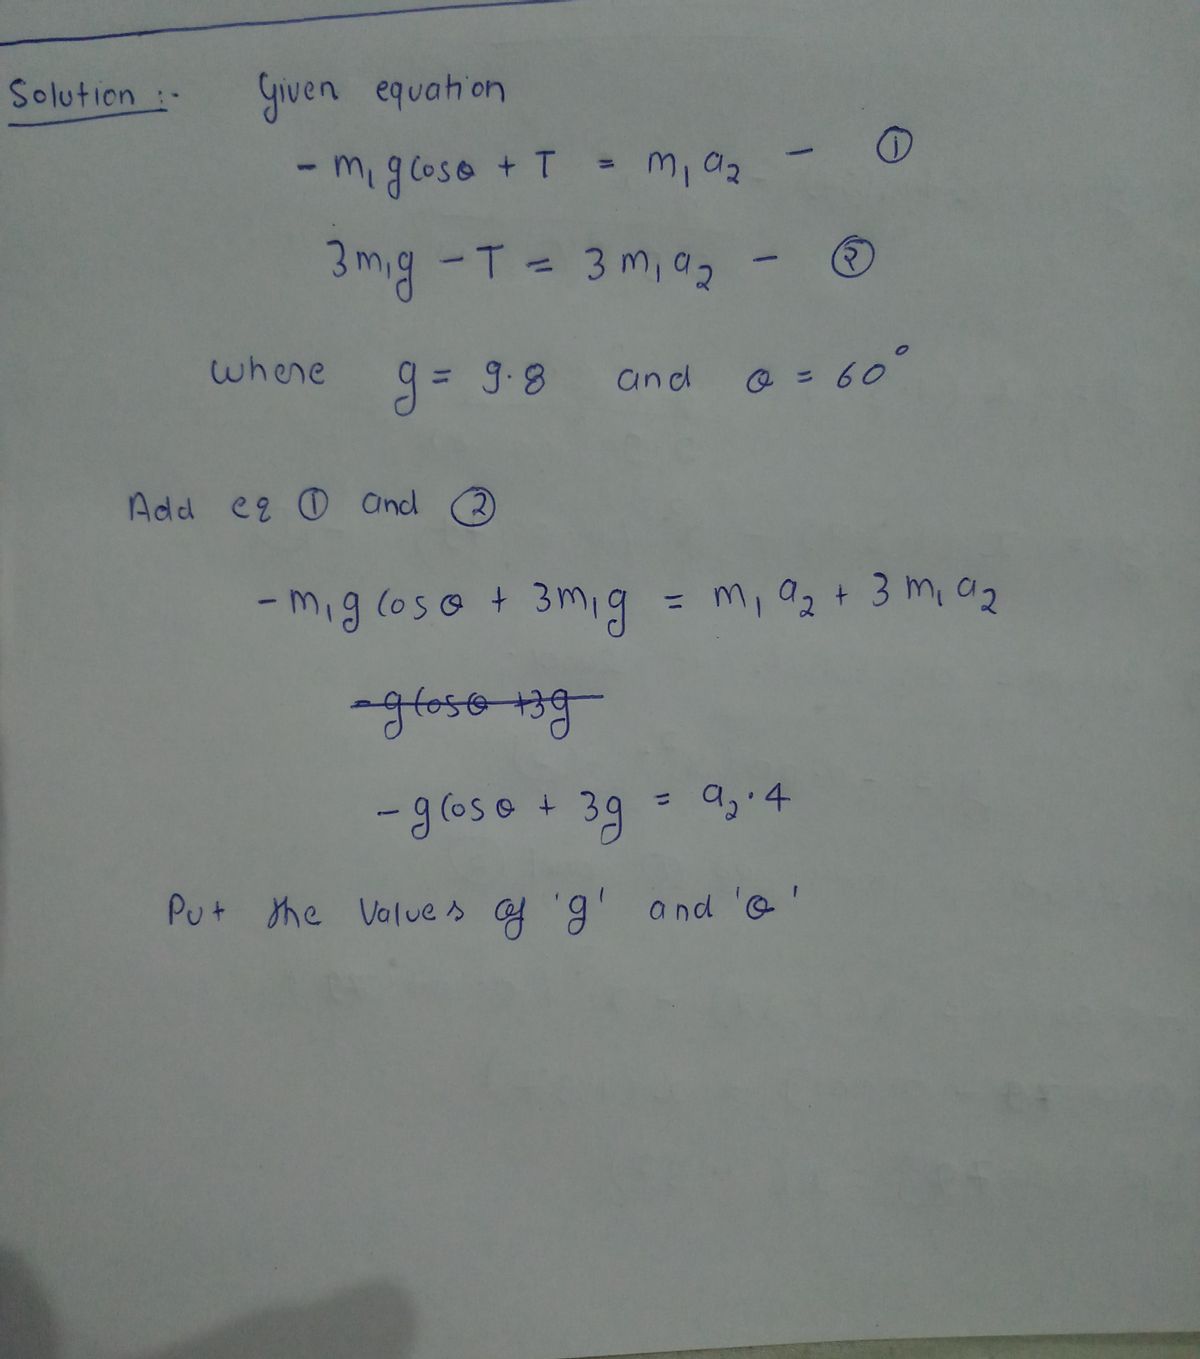 Solution :- Given equation
- m₁ g cosθ + T = m₁ a₂ - ①
3m₁g - T = 3 m₁ a₂ - ②
where g = 9.8 and θ = 60°
Add eq ① and ②
- m₁g cosθ + 3m₁g = m₁ a₂ + 3 m₁ a₂
-g cosθ +3g
- g cosθ + 3g = a₂ · 4
Put the values of 'g' and 'θ'